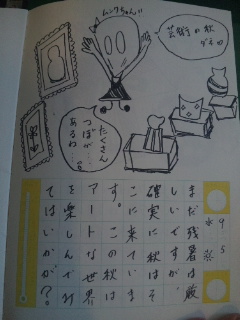 ムンクちゃん!!
芸術の秋
たくさん
つぼが…
あるわ
9 5
水
まだ残暑は厳
しいですが、
確実に秋はそ
こに来ていま
す。この秋は
アートな世界
を楽しんでみ
てはいかが？